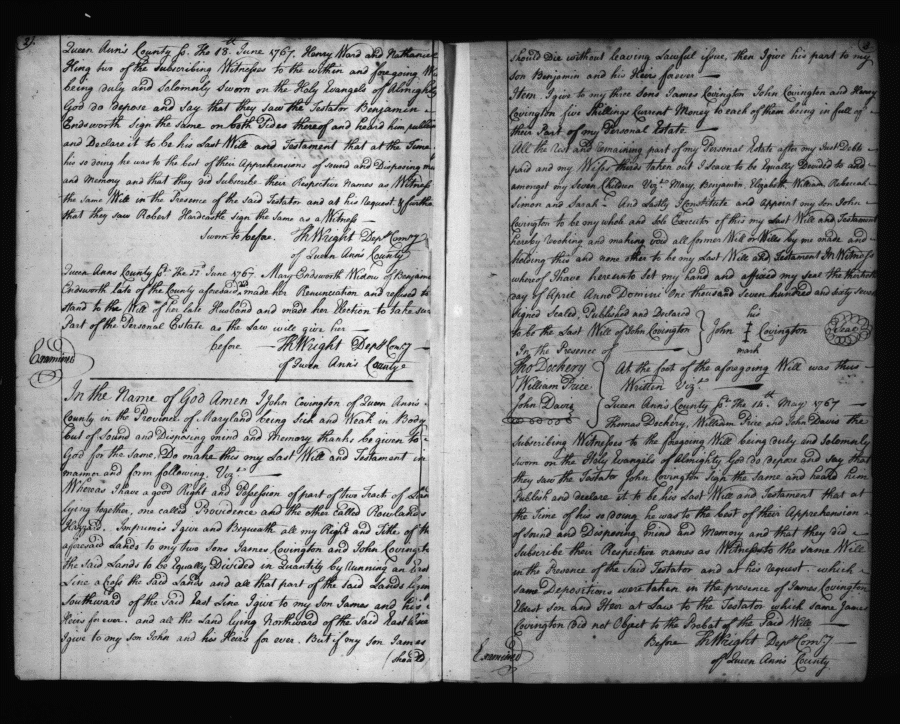 Queen Ann's County Ss. The 18th June 1767. Henry Ward and Nathaniel
King two of the Subscribing Witnesses to the within and foregoing
being duly and Solemnly Sworn on the Holy Evangels of Almighty
God do depose and Say that they saw the Testator Benjamin
Endsworth Sign the Same on both Sides thereof and heard him publish
and Declare it to be his Last Will and Testament that at the Time
his so doing he was to the best of their Apprehensions of Sound and Disposing
and Memory and that they did Subscribe their Respective Names as Witness
the Same Will in the Presence of the Said Testator and at his Request & further
that they Saw Robert Hardcastle Sign the Same as a Witness —
Sworn to before. Th Wright Depy Comy
of Queen Ann's County
Queen Anns County Ss. The June 1767. Mary Endsworth Widow of Benjamin
Endsworth late of the County aforesaid made her Renunciation and refused to
Stand to the Will of her late Husband and made her Election to take
Part of the Personal Estate as the Law will give her —
before Th Wright Depy Comy
of Queen Anns County
Examined
In the Name of God Amen I John Covington of Queen Ann's
County in the Province of Maryland being Sick and Weak in Body
but of Sound and Disposing mind and Memory thanks be given to
God for the Same, Do make this my Last Will and Testament in
mannor and form following. Vizt —
Whereas I have a good Right and Possession of part of two Tracts of Land
lying together, one called Providence and the other called Rowlands
Hazzard. Imprimis I give and Bequeath all my Right and Title of the
aforesaid Lands to my two Sons James Covington and John Covington
the Said Lands to be Equally Divided in Quantity by Running an East
Line aCross the Said Lands and all that part of the Said Lands lying
Southward of the Said East Line I give to my Son James and his
Heirs for ever. and all the Land lying Northward of the Said East Line
I give to my Son John and his Heirs for ever. But if my Son James
(Should
should Die without leaving Lawful issue, then I give his part to my
Son Benjamin and his Heirs forever —
Item. I give to my three Sons James Covington John Covington and Henry
Covington five Shillings Current Money to each of them being in full of
their Part of my Personal Estate —
All the rest and remaining part of my Personal Estate after my Just Debts
paid and my Wifes thirds taken out I leave to be Equally Divided to and
amongst my Seven Children Vizt. Mary, Benjamin Elizabeth William Rebeccah
Simon and Sarah. And Lastly I Constitute and appoint my Son John
Covington to be my whole and Sole Executor of this my Last Will and Testament
hereby Revoking and making void all former Will or Wills by me made and
holding this and none other to be my Last Will and Testament In Witness
whereof I have hereunto Set my hand and affixed my Seal the thirtieth
day of April Anno Domini One thousand Seven hundred and Sixty Seven
Signed Sealed Published and Declared
to be the Last Will of John Covington
In the Presence of
his
John Covington
mark
Seal
Tho Dockery
William Price
John Davis
At the foot of the aforegoing Will was thus
Written Vizt —
Queen Ann's County Ss. The 15th May 1767 —
Thomas Dockery, William Price and John Davis the
Subscribing Witnesses to the foregoing Will being duly and Solemnly
Sworn on the Holy Evangels of Almighty God do depose and Say that
they saw the Testator John Covington Sign the Same and heard him
Publish and declare it to be his Last Will and Testament that at
the Time of his so doing he was to the best of their Apprehension
of Sound and Disposing mind and Memory and that they did
Subscribe their Respective names as Witnesses to the Same Will
in the Presence of the Said Testator and at his request. which
Same Depositions were taken in the presence of James Covington
Eldest Son and Heir at Law to the Testator which Same James
Covington Did not Object to the Probat of the Said Will —
Before Th Wright Depy Comy
of Queen Ann's County
Examined